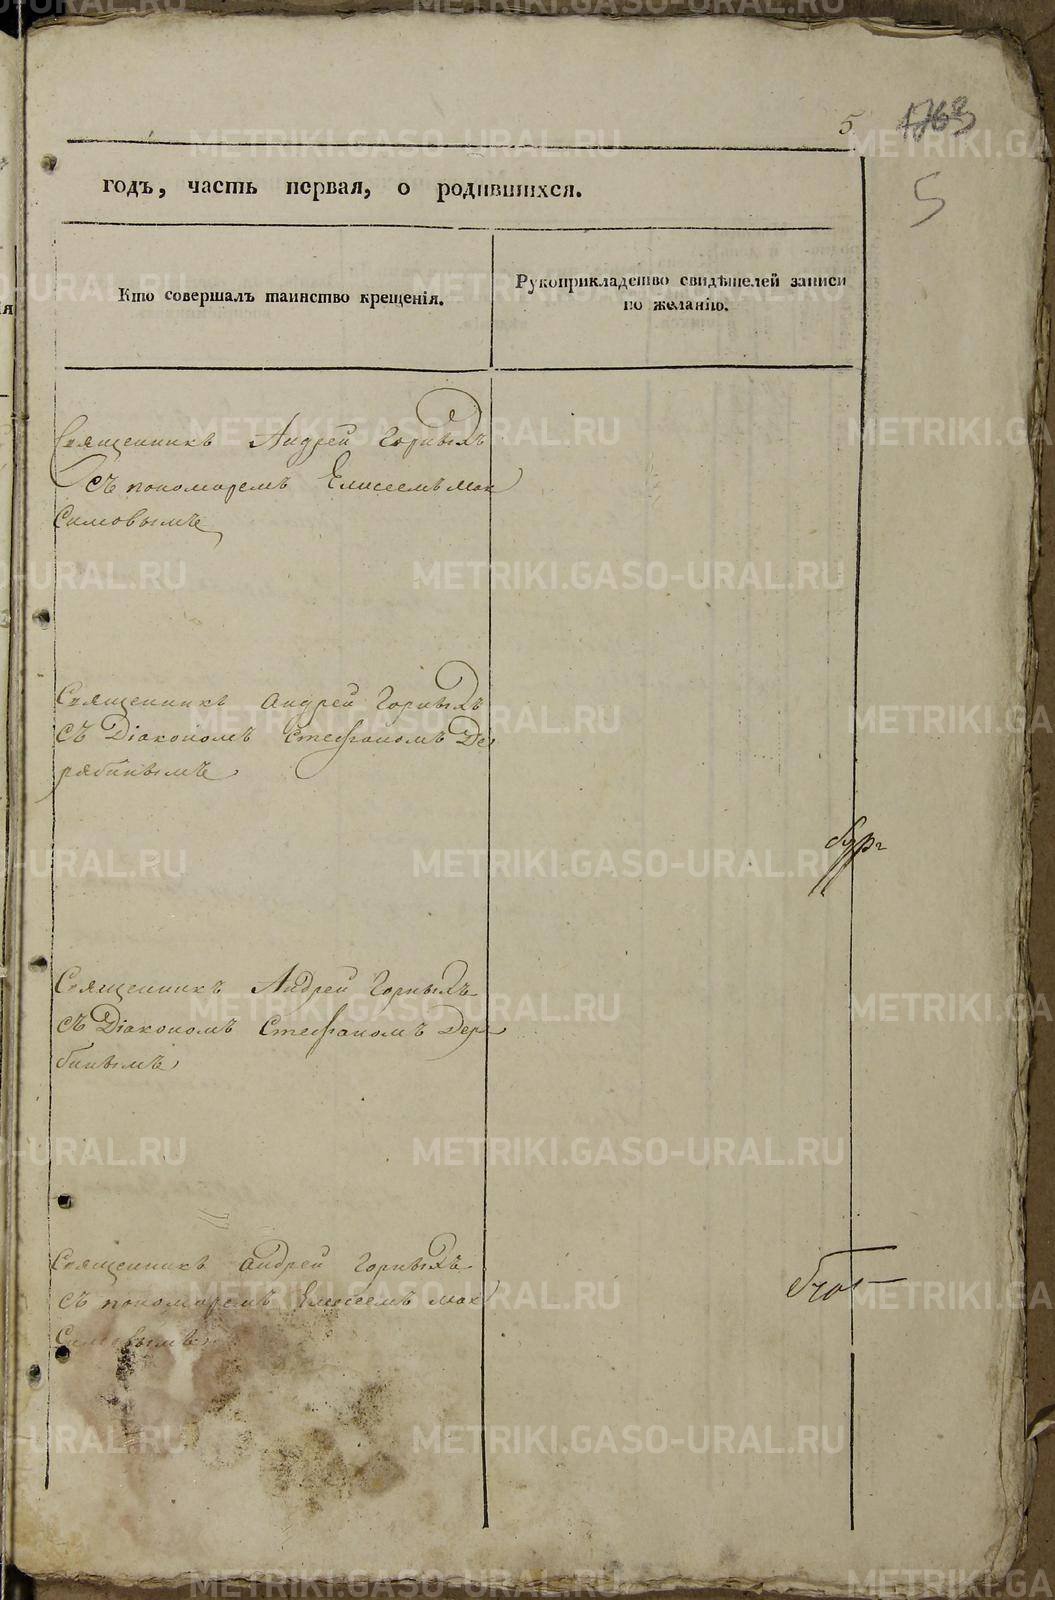 5
5
годъ, часть первая, о родившихся.
Кто совершалъ таинство крещенія.
Рукоприкладство свидѣтелей записи
по желанію.
Священникъ Андрей Горныхъ
съ пономаремъ Елисеемъ Мак
симовымъ
Священникъ Андрей Горныхъ
съ Діакономъ Стефаномъ Де
рябинымъ
Священникъ Андрей Горныхъ
съ Діакономъ Стефаномъ Деря
бинымъ
Священникъ Андрей Горныхъ
съ пономаремъ Елисеемъ Мак
симовымъ
METRIKI.GASO-URAL.RU